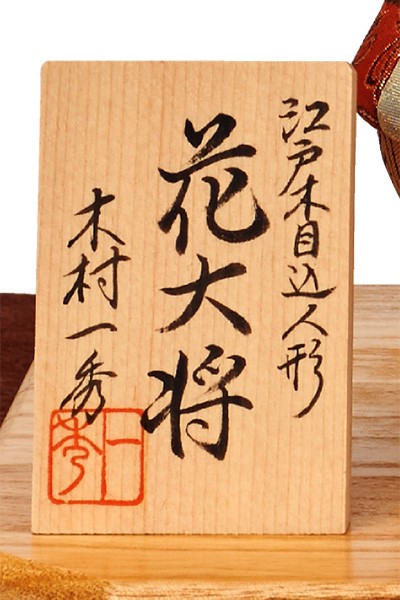 江戸木目込人形
花大将
木村一秀
一秀